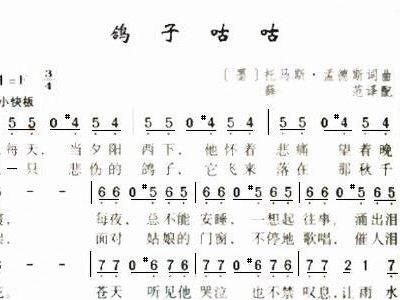 鸽 子 咕 咕
1=F 3/4
〔墨〕托马斯·孟德斯词曲
小快板
薛 范译配
5 5 0 #4 5 4 5 5 0 #4 5 4 5 5 0 #4 5 4 5 5 0 #4 5 4
每 天, 当 夕 阳 西 下, 他 怀 着 悲 痛 望 着 晚
一 只 悲 伤 的 鸽 子, 它 飞 来 落 在 那 秋 千
5 - - 6 6 0 #5 6 5 6 6 0 #5 6 5 6 6 0 #5 6 5
每夜, 总 不 能 安 睡, 一 想 起 往 事, 涌 出 泪
面对 姑娘 的 门窗, 不停地 歌唱, 催人泪
- - 7 7 0 #6 7 6 7 7 0 #6 7 6 7 7 0 #6 7 6
苍天 听见他 哭泣 也不禁 叹息,让雨 水